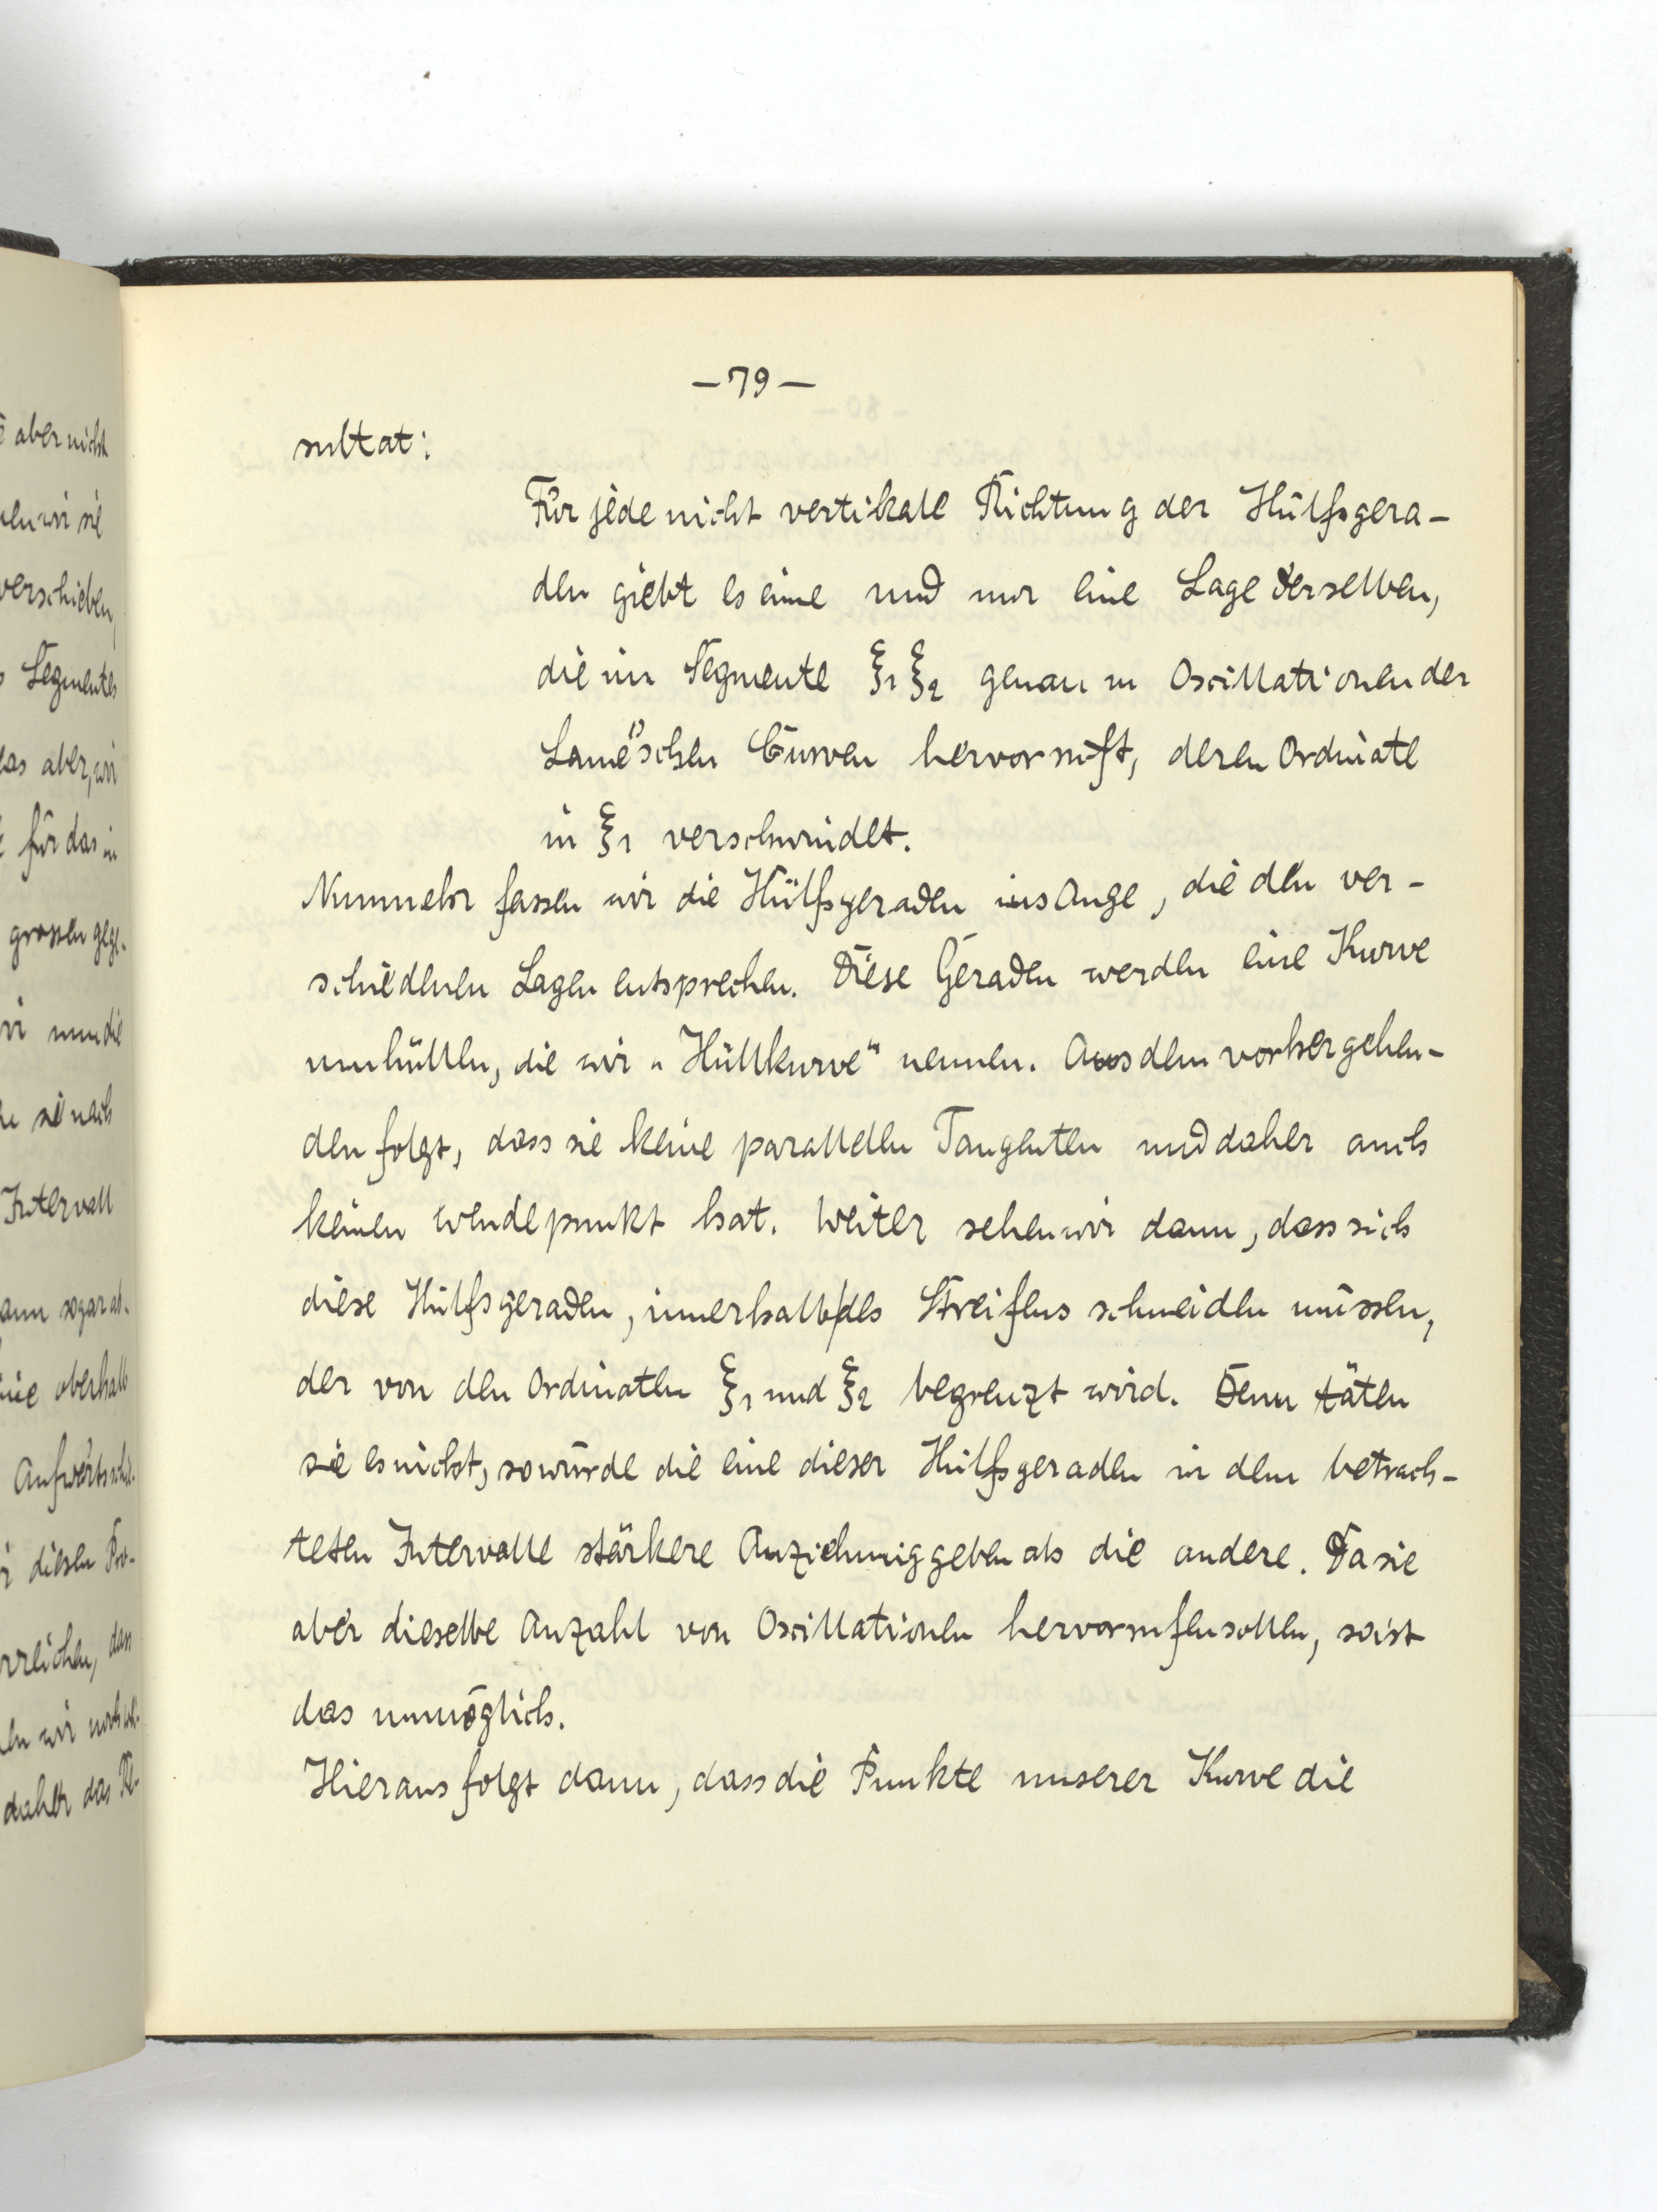 — 79 —
sultat:
Für jede nicht vertikale Richtung der Hülfsgera-
den giebt es eine und nur eine Lage derselben,
die im Segmente ξ1 ξ2 genau m Oscillationen der
Lamé'schen Curven hervorruft, deren Ordinate
in ξ1 verschwindet.
Nunmehr fassen wir die Hülfsgeraden ins Auge, die den ver-
schiedenen Lagen entsprechen. Diese Geraden werden eine Kurve
umhüllen, die wir „Hüllkurve“ nennen. Aus dem vorhergehen-
den folgt, dass sie keine parallelen Tangenten und daher auch
keinen Wendepunkt hat. Weiter sehen wir dann, dass sich
diese Hülfsgeraden, innerhalb des Streifens schneiden müssen,
der von den Ordinaten ξ1 und ξ2 begrenzt wird. Denn täten
sie es nicht, so würde die eine dieser Hülfsgeraden in dem betrach-
teten Intervalle stärkere Anziehung geben als die andere. Da sie
aber dieselbe Anzahl von Oscillationen hervorrufen sollen, so ist
das unmöglich.
Hieraus folgt dann, dass die Punkte unserer Kurve die
aber nicht
wir sie
verschieben,
Segmentes
das aber, wir
für das in
grossen gege-
nun die
sie nach
Intervall
sogar ab-
oberhalb
Aufwärts
diesen Pro-
dass
wir noch
daher das Re-